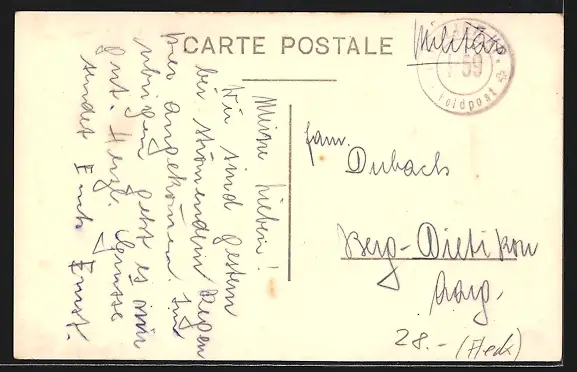 CARTE POSTALE
Militär
I 59
Feldpost
Meine Lieben!
Wir sind gestern
bei strömendem Regen
hier angekommen. Im
übrigen geht es mir
gut. Herzl. Grüsse
sendet Euch Ernst.
Fam.
Dubach
Berg-Dietikon
Aarg.
28.- (Fleck)